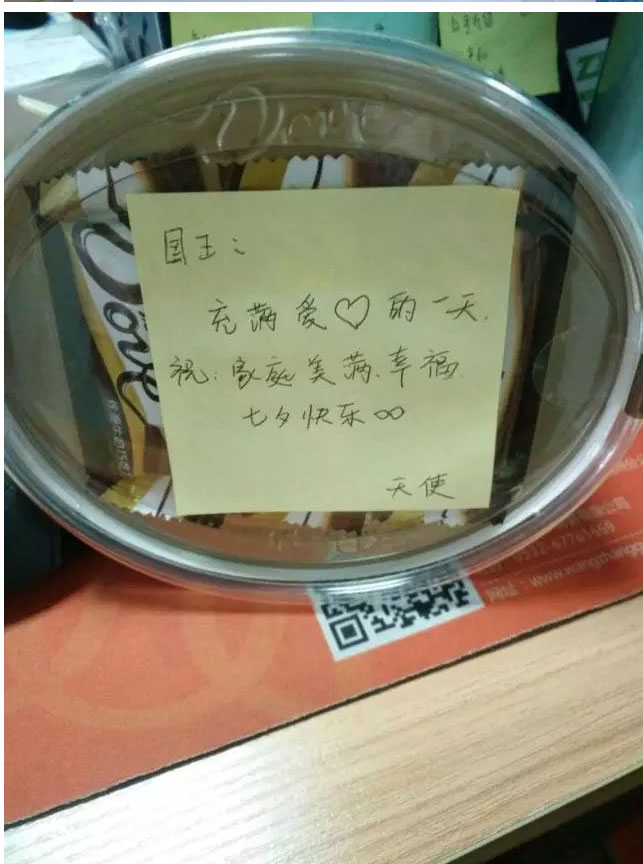 Dove
国王：
充满爱♡的一天.
祝.家庭美满.幸福.
七夕快乐∞
天使
Dove
0532-67761669